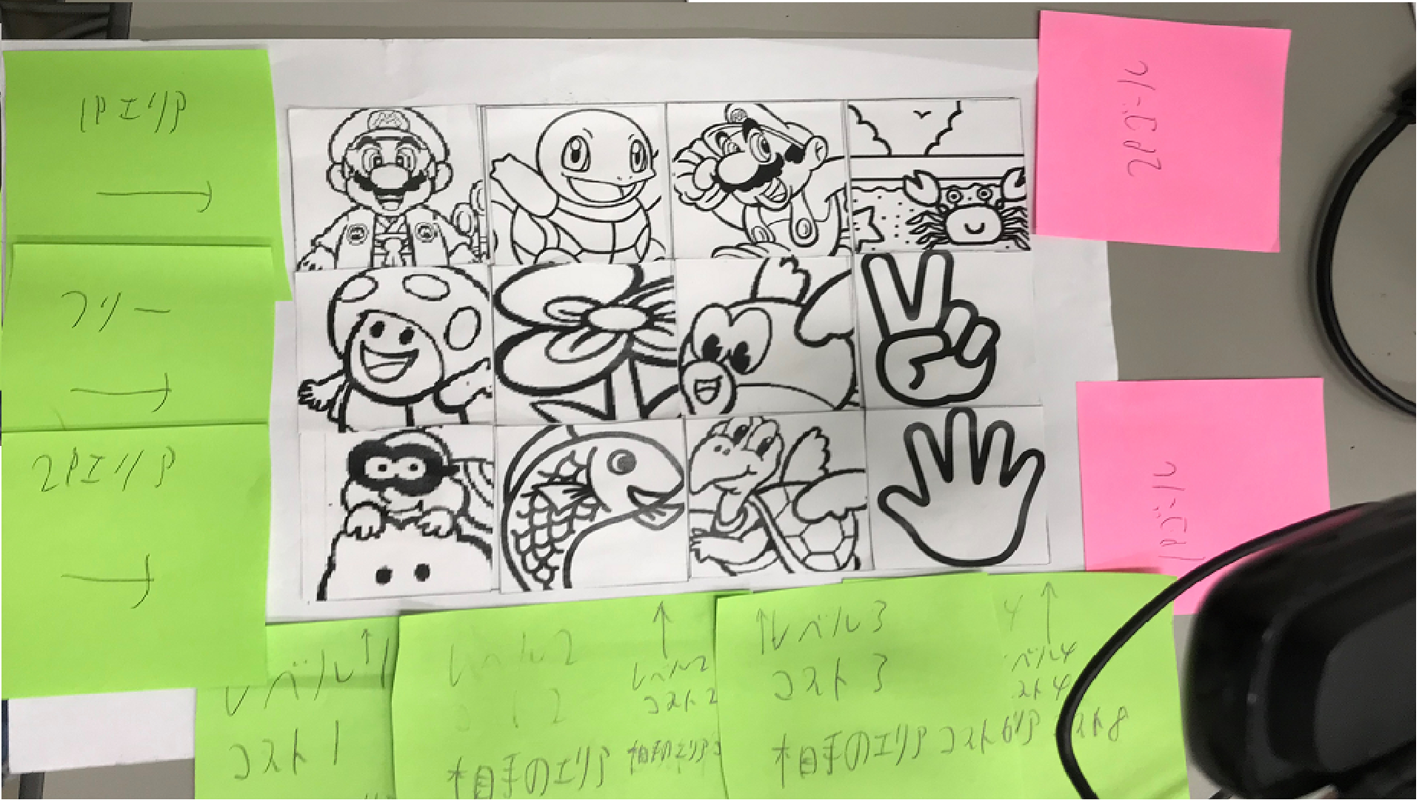 1Pエリア
フリー
2Pエリア
レベル1
コスト1
レベル2
コスト2
相手のエリア
レベル2
コスト2
相手のエリアコ
レベル3
コスト3
相手のエリア コスト6
4
ベル4
スト4
リア スト8